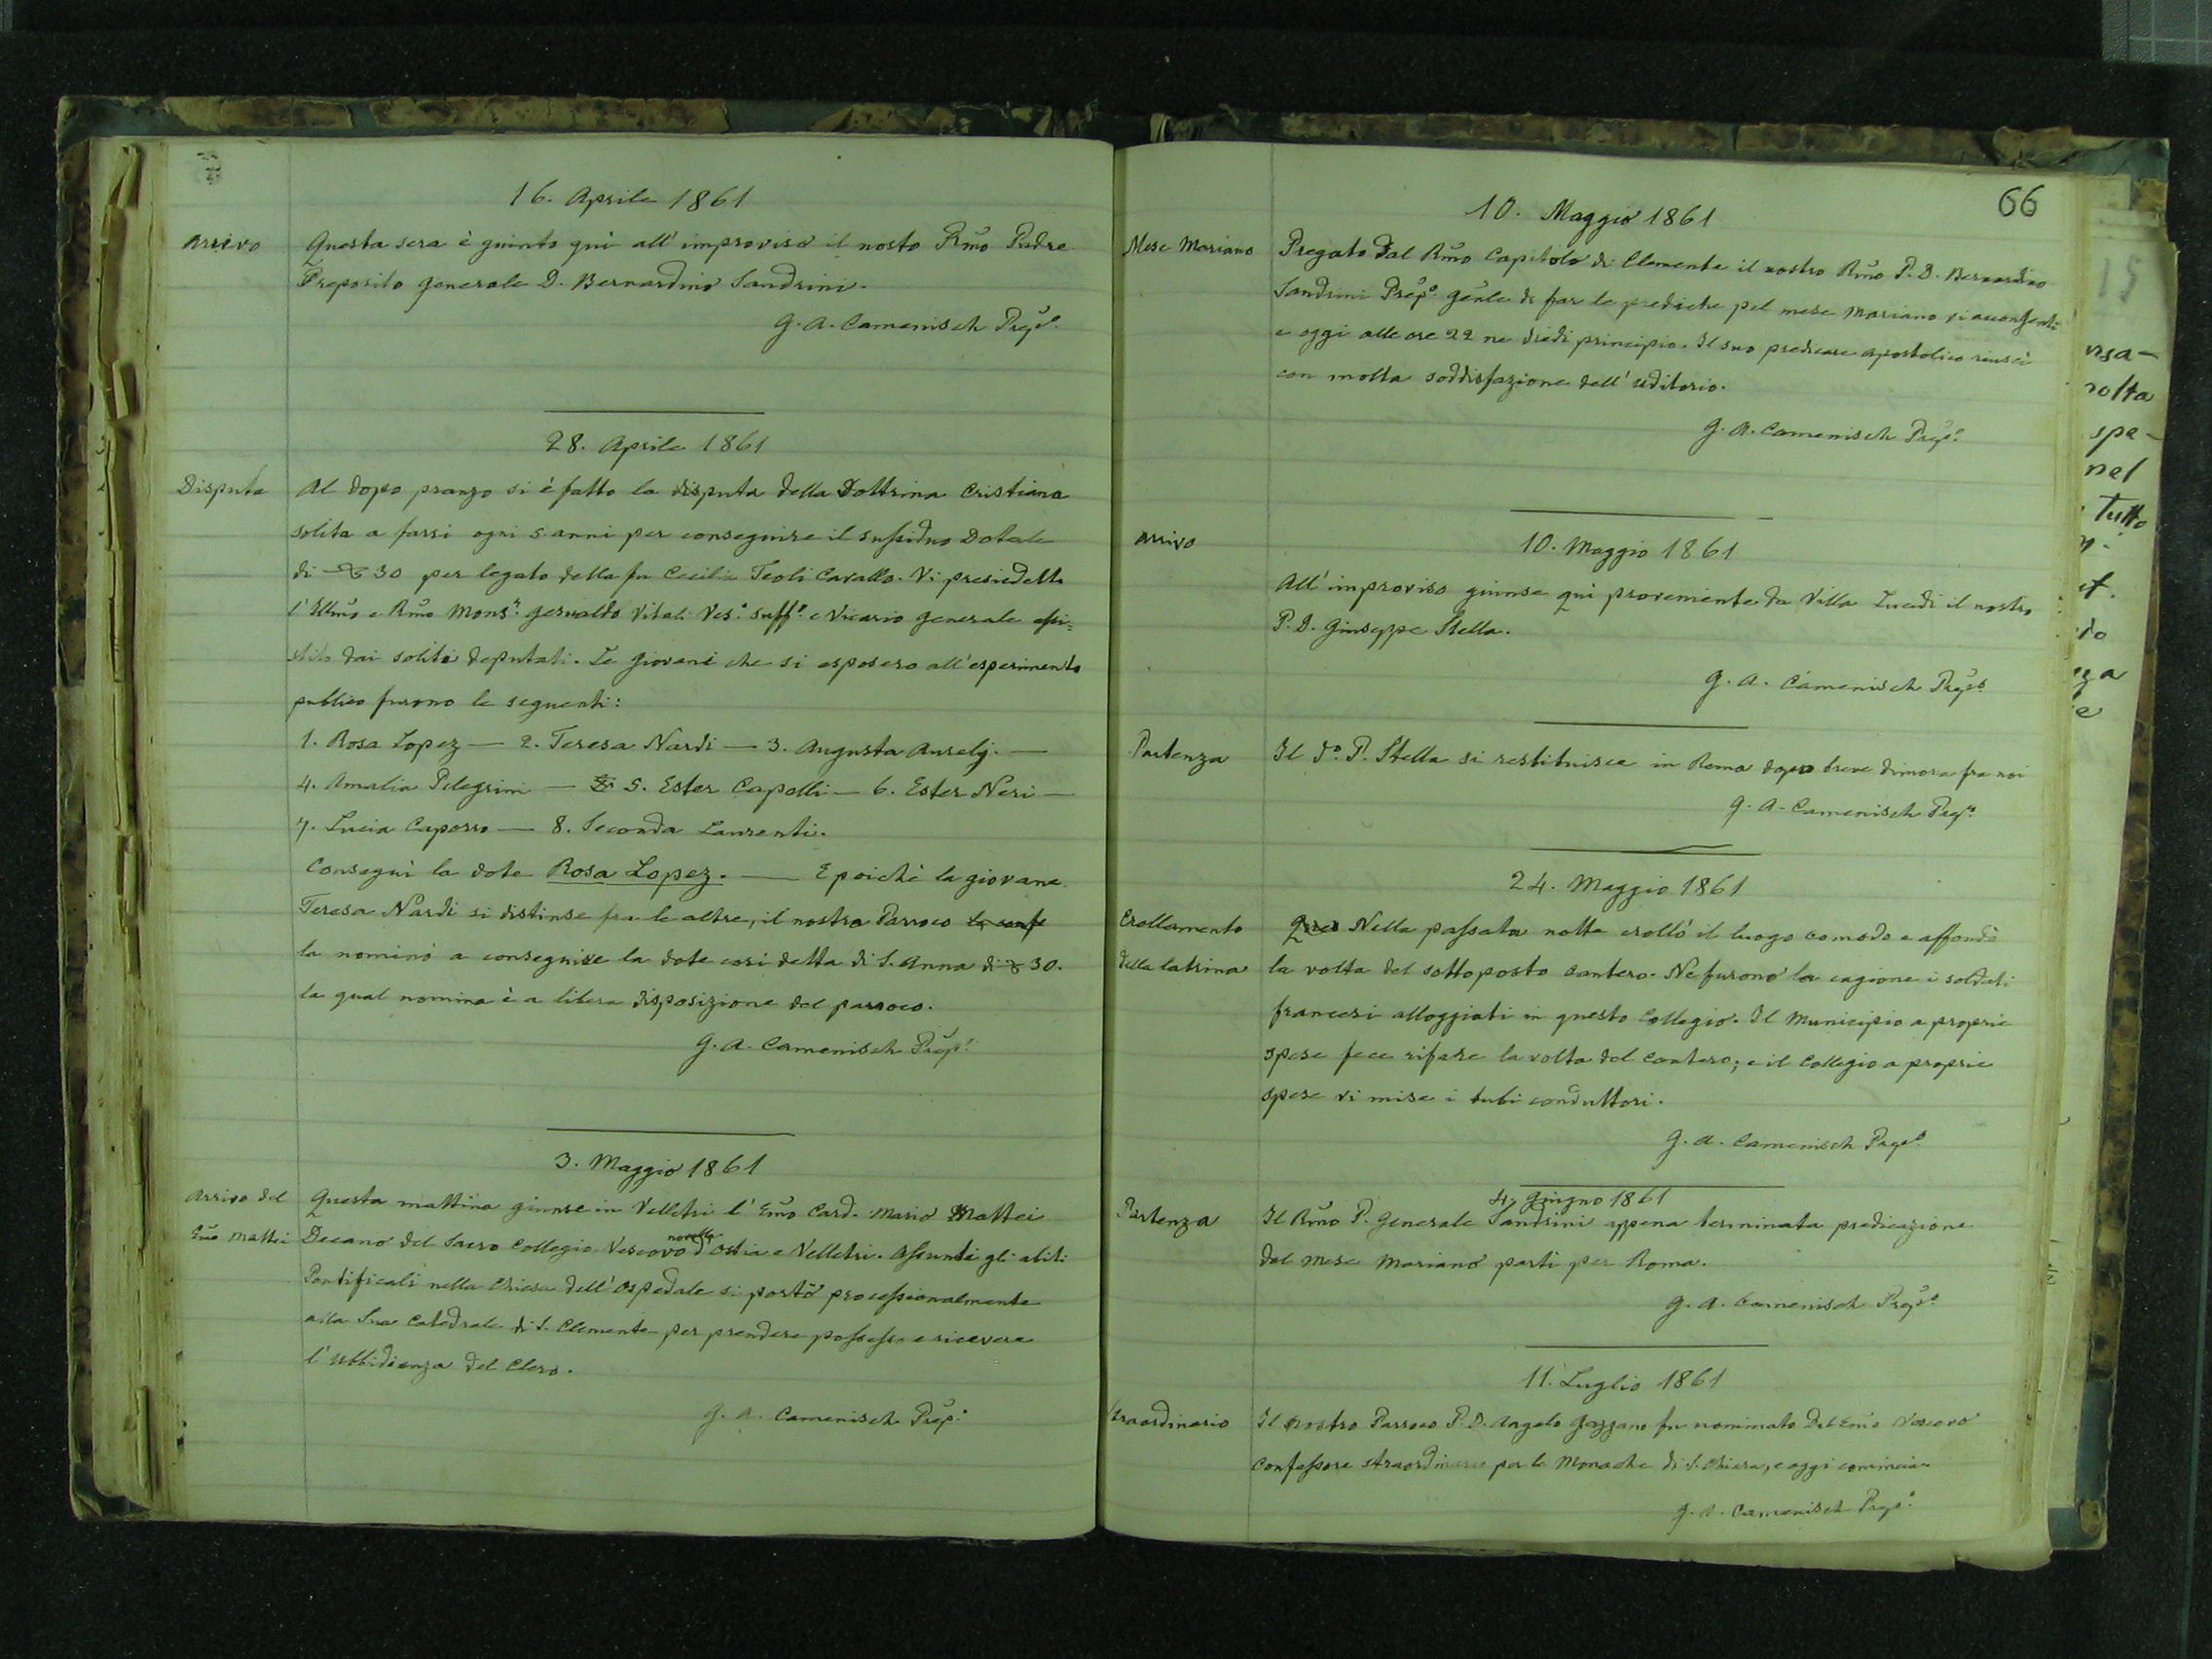 16. Aprile 1861
Arrivo
Questa sera è guinto quì all' improviso il nosto Rmo Padre
Preposito Generale D. Bernardino Sandrini.
G. A. Camenisch Prepo.
28. Aprile 1861
Disputa
Al dopo pranzo si è fatto la disputa della Dottrina Cristiana
solita a farsi ogni 5 anni per conseguire il sussidio Dotale
di 30 per legato della fu Cecilia Teoli Cavallo. Vi presiedette
l'Illmo e Rmo Monsr. Gesualdo Vitali Ves.o suffo. e Vicario Generale assi=
stito dai soliti deputati. Le Giovani che si esposero all'esperimento
publico furono le seguenti:
1. Rosa Lopez — 2. Teresa Nardi — 3. Augusta Aurelj. —
4. Amalia Pelegrini — 5. Ester Capelli — 6. Ester Neri —
7. Lucia Caporro — 8. Seconda Laurenti.
Conseguì la dote Rosa Lopez. — E poichè la giovane
Teresa Nardi si distinse fra le altre, il nostro Parroco
la nominò a conseguire la dote così detta di S. Anna di 30.
la qual nomina è a libera disposizione del parroco.
G. A. Camenisch Prepo.
3. Maggio 1861
Arrivo del
Emo Mattei
Questa mattina giunse in Velletri l'Emo Card. Mario Mattei
Decano del Sacro Collegio Vescovo novello d'Ostia e Velletri. Assunti gli abiti
Pontificali nella Chiesa dell'Ospedale si portò processionalmente
alla Sua Catedrale di S. Clemente per prendere possesso e ricevere
l'ubbidienza del Clero.
G. A. Camenisch Prepo.
66
10. Maggio 1861
Mese Mariano
Pregato dal Rmo Capitolo di Clemente il nostro Rmo P. D. Bernardino
Sandrini Prepo. Genle di far le prediche pel mese Mariano vi acconsentì
e oggi alle ore 22 ne diedi principio. Il suo predicare apostolico riuscì
con molta soddisfazione dell'uditorio.
G. A. Camenisch Prepo.
Arrivo
10. Maggio 1861
All'improviso giunse quì proveniente da Villa Lucidi il nostro
P. D. Giuseppe Stella.
G. A. Camenisch Prepo.
Partenza
Il do. P. Stella si restituisce in Roma dopo breve dimora fra noi
G. A. Camenisch Prepo.
24. Maggio 1861
Crollamento
della latrina
Nella passata notte crollò il luogo comodo e affondò
la volta del sottoposto cantero. Ne furono la cagione i soldati
francesi alloggiati in questo Collegio. Il Municipio a proprie
spese fece rifare la volta del cantero; e il Collegio a proprie
spese vi mise i tubi conduttori.
G. A. Camenisch Prepo.
4. Giugno 1861
Partenza
Il Rmo P. Generale Sandrini appena terminata predicazione
del mese Mariano partì per Roma.
G. A. Camenisch Prepo.
11. Luglio 1861
straordinario
Il nostro Parroco P. D. Angelo Gazzano fu nominato dal Emo Vescovo
Confessore straordinario per le Monache di S. Chiara, e oggi comincia
G. A. Camenisch Prepo.
15
rsa-
rolta
spe-
nel
Tutto